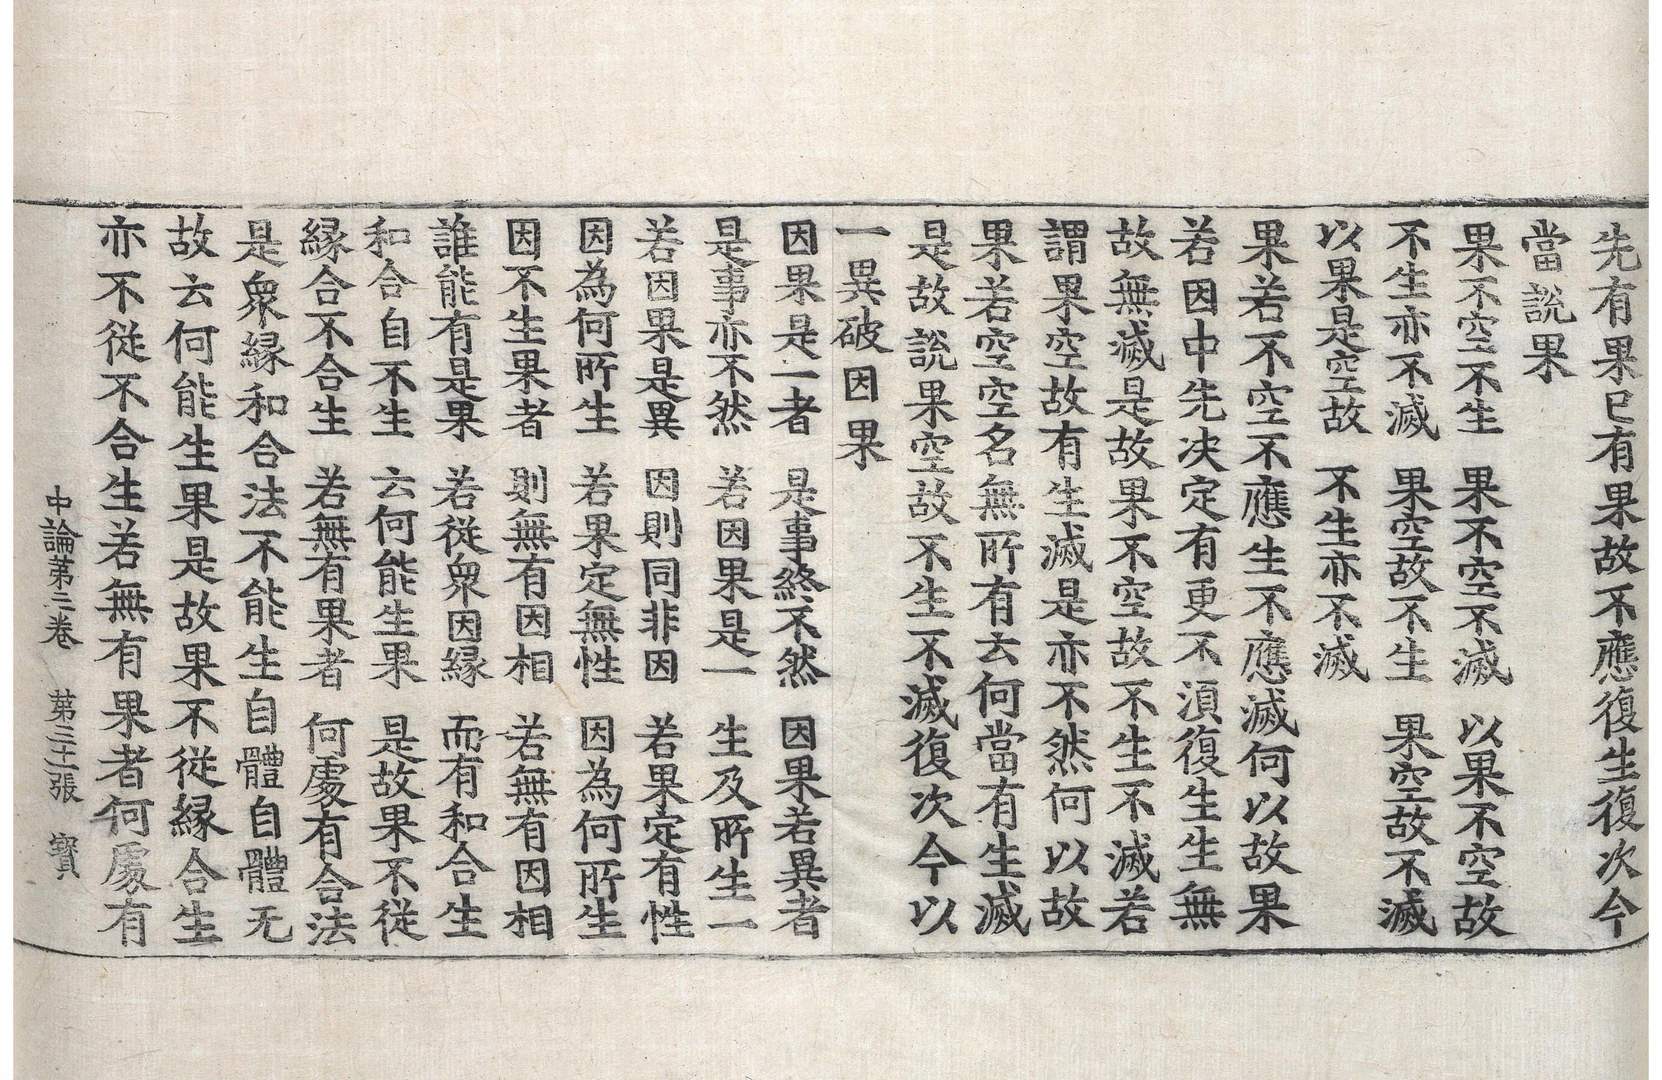 先有果已有果故不應復生復次今
當說果
果不空不生　果不空不滅　以果不空故
不生亦不滅　果空故不生　果空故不滅
以果是空故　不生亦不滅
果若不空不應生不應滅何以故果
若因中先决定有更不湏復生生無
故無滅是故果不空故不生不滅若
謂果空故有生滅是亦不然何以故
果若空空名無所有云何當有生滅
是故說果空故不生不滅復次今以
一異破因果
因果是一者　是事終不然　因果若異者
是事亦不然　若因果是一　生及所生一
若因果是異　因則同非因　若果定有性
因為何所生　若果定無性　因為何所生
因不生果者　則無有因相　若無有因相
誰能有是果　若從衆因緣　而有和合生
和合自不生　云何能生果　是故果不從
緣合不合生　若無有果者　何處有合法
是衆緣和合法不能生自體自體无
故云何能生果是故果不從緣合生
亦不從不合生若無有果者何處有
中論第二卷　第三十張　寶